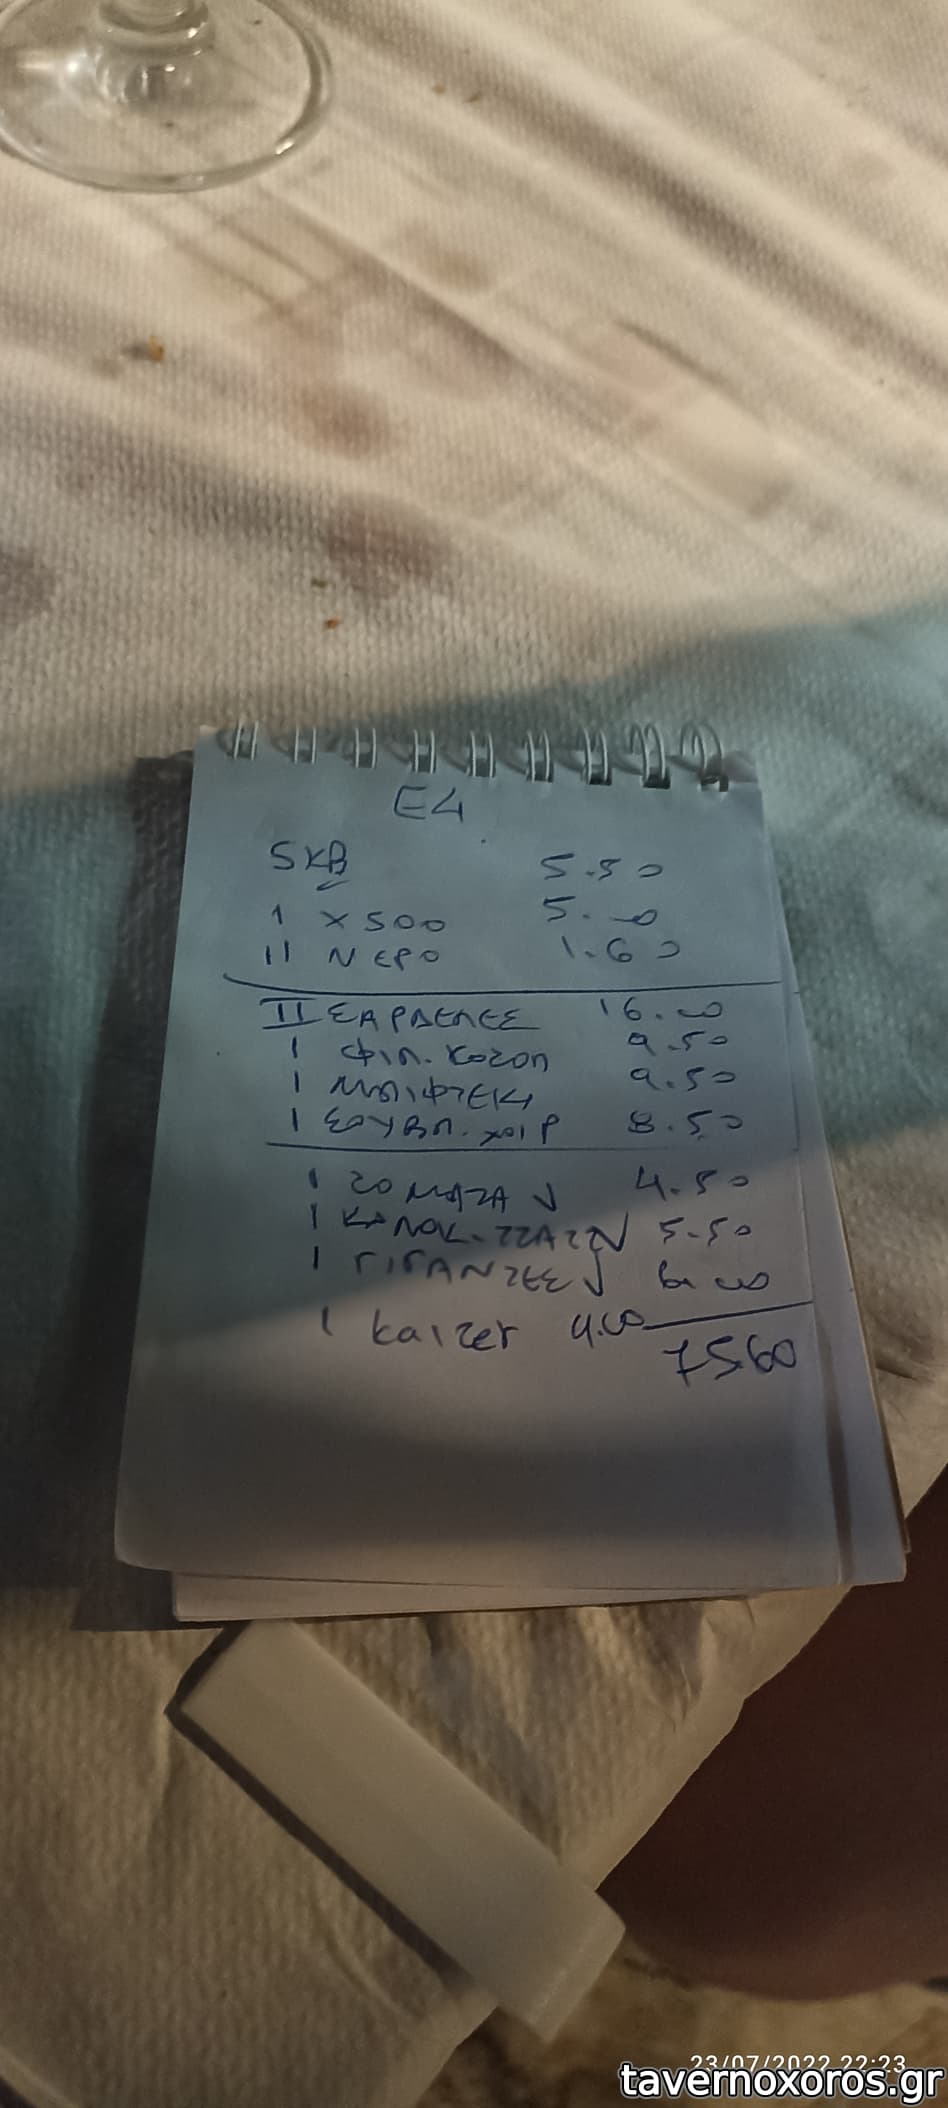 E4
5 ΚΒ 5.50
1 Χ 500 5.00
11 ΝΕΡΟ 1.60
II ΣΑΡΔΕΛΕΣ 16.00
1 ΦΙΛ. ΚΟΤΟΠ 9.50
1 ΜΠΙΦΤΕΚΙ 9.50
1 ΣΟΥΒΛ. ΧΟΙΡ 8.50
1 ΤΟΜΑΤΑ 4.50
1 ΚΟΛΟΚ. ΤΖΑΤΖ 5.50
1 ΓΙΓΑΝΤΕΣ 6.00
1 kaizer 4.00
75.60
23/07/2022 22:23
tavernoxoros.gr